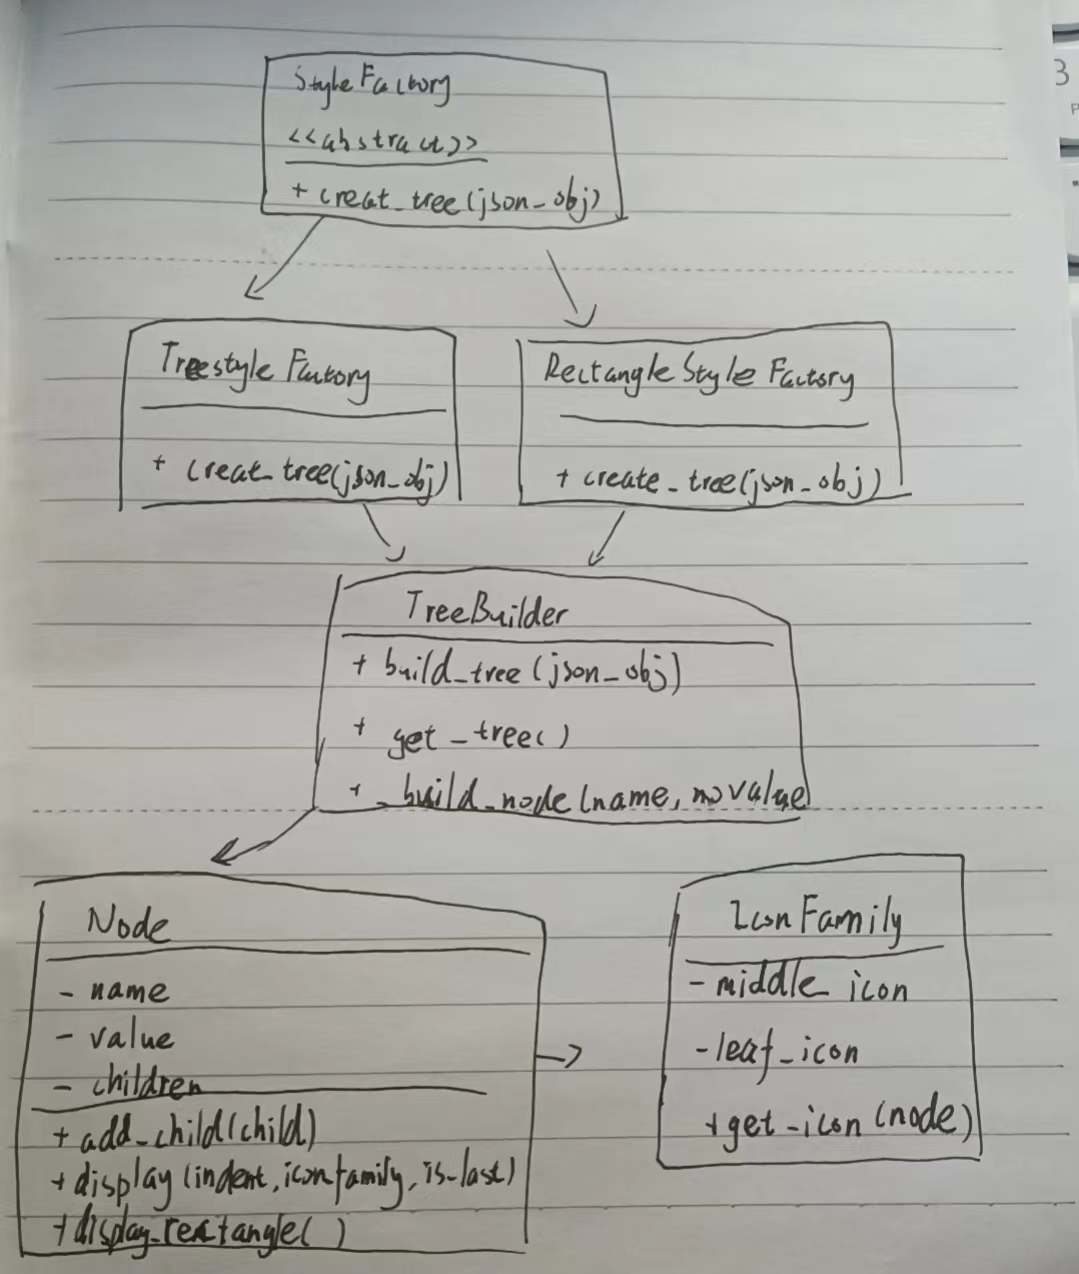 StyleFactory
<<abstract>>
+ creat_tree(json_obj)
Treestyle Factory
+ creat_tree(json_obj)
Rectangle Style Factory
+ create_tree(json_obj)
TreeBuilder
+ build_tree(json_obj)
+ get_tree()
+ _build_node(name, value
Node
- name
- value
- children
+ add_child(child)
+ display(indent, iconfamily, is_last)
+ display_rectangle()
IconFamily
- middle icon
- leaf_icon
+ get_icon(node)
3
P